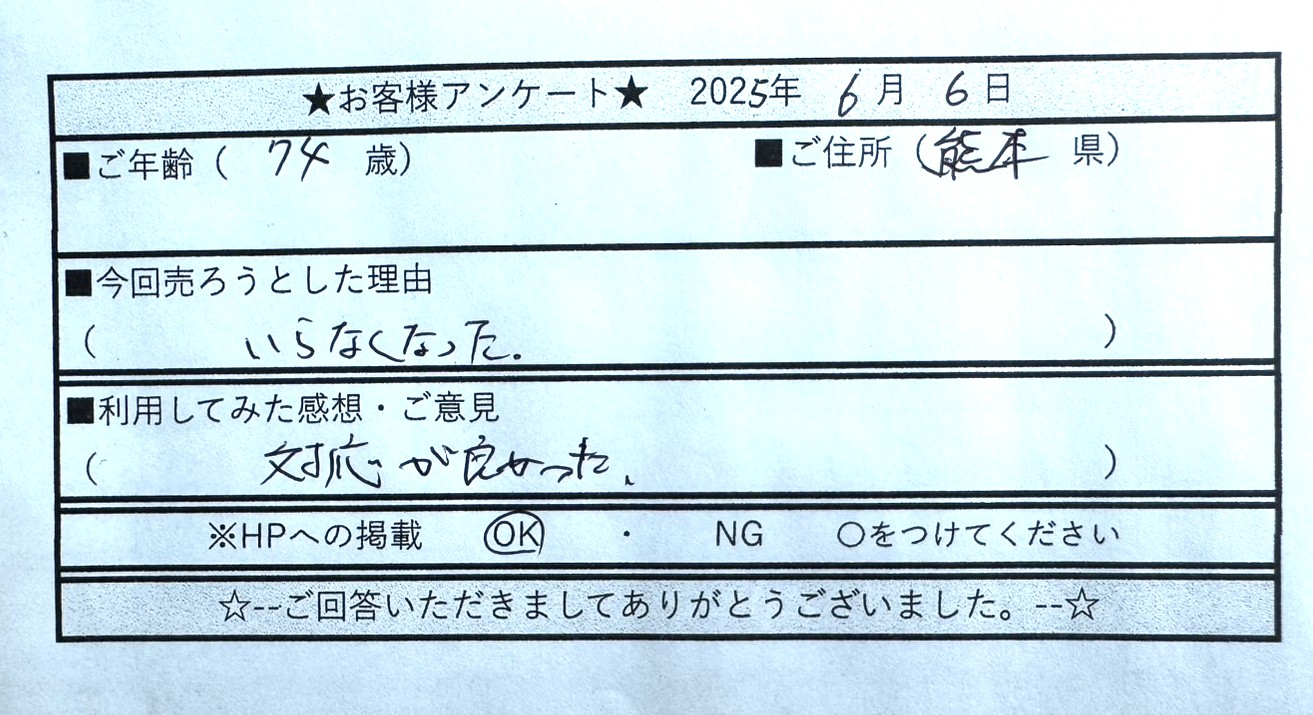 ★お客様アンケート★ 2025年 6月 6日
■ご年齢（ 74 歳） ■ご住所（熊本 県）
■今回売ろうとした理由
（ いらなくなった. ）
■利用してみた感想・ご意見
（ 対応が良かった、 ）
※HPへの掲載 OK ・ NG ○をつけてください
☆--ご回答いただきましてありがとうございました。--☆